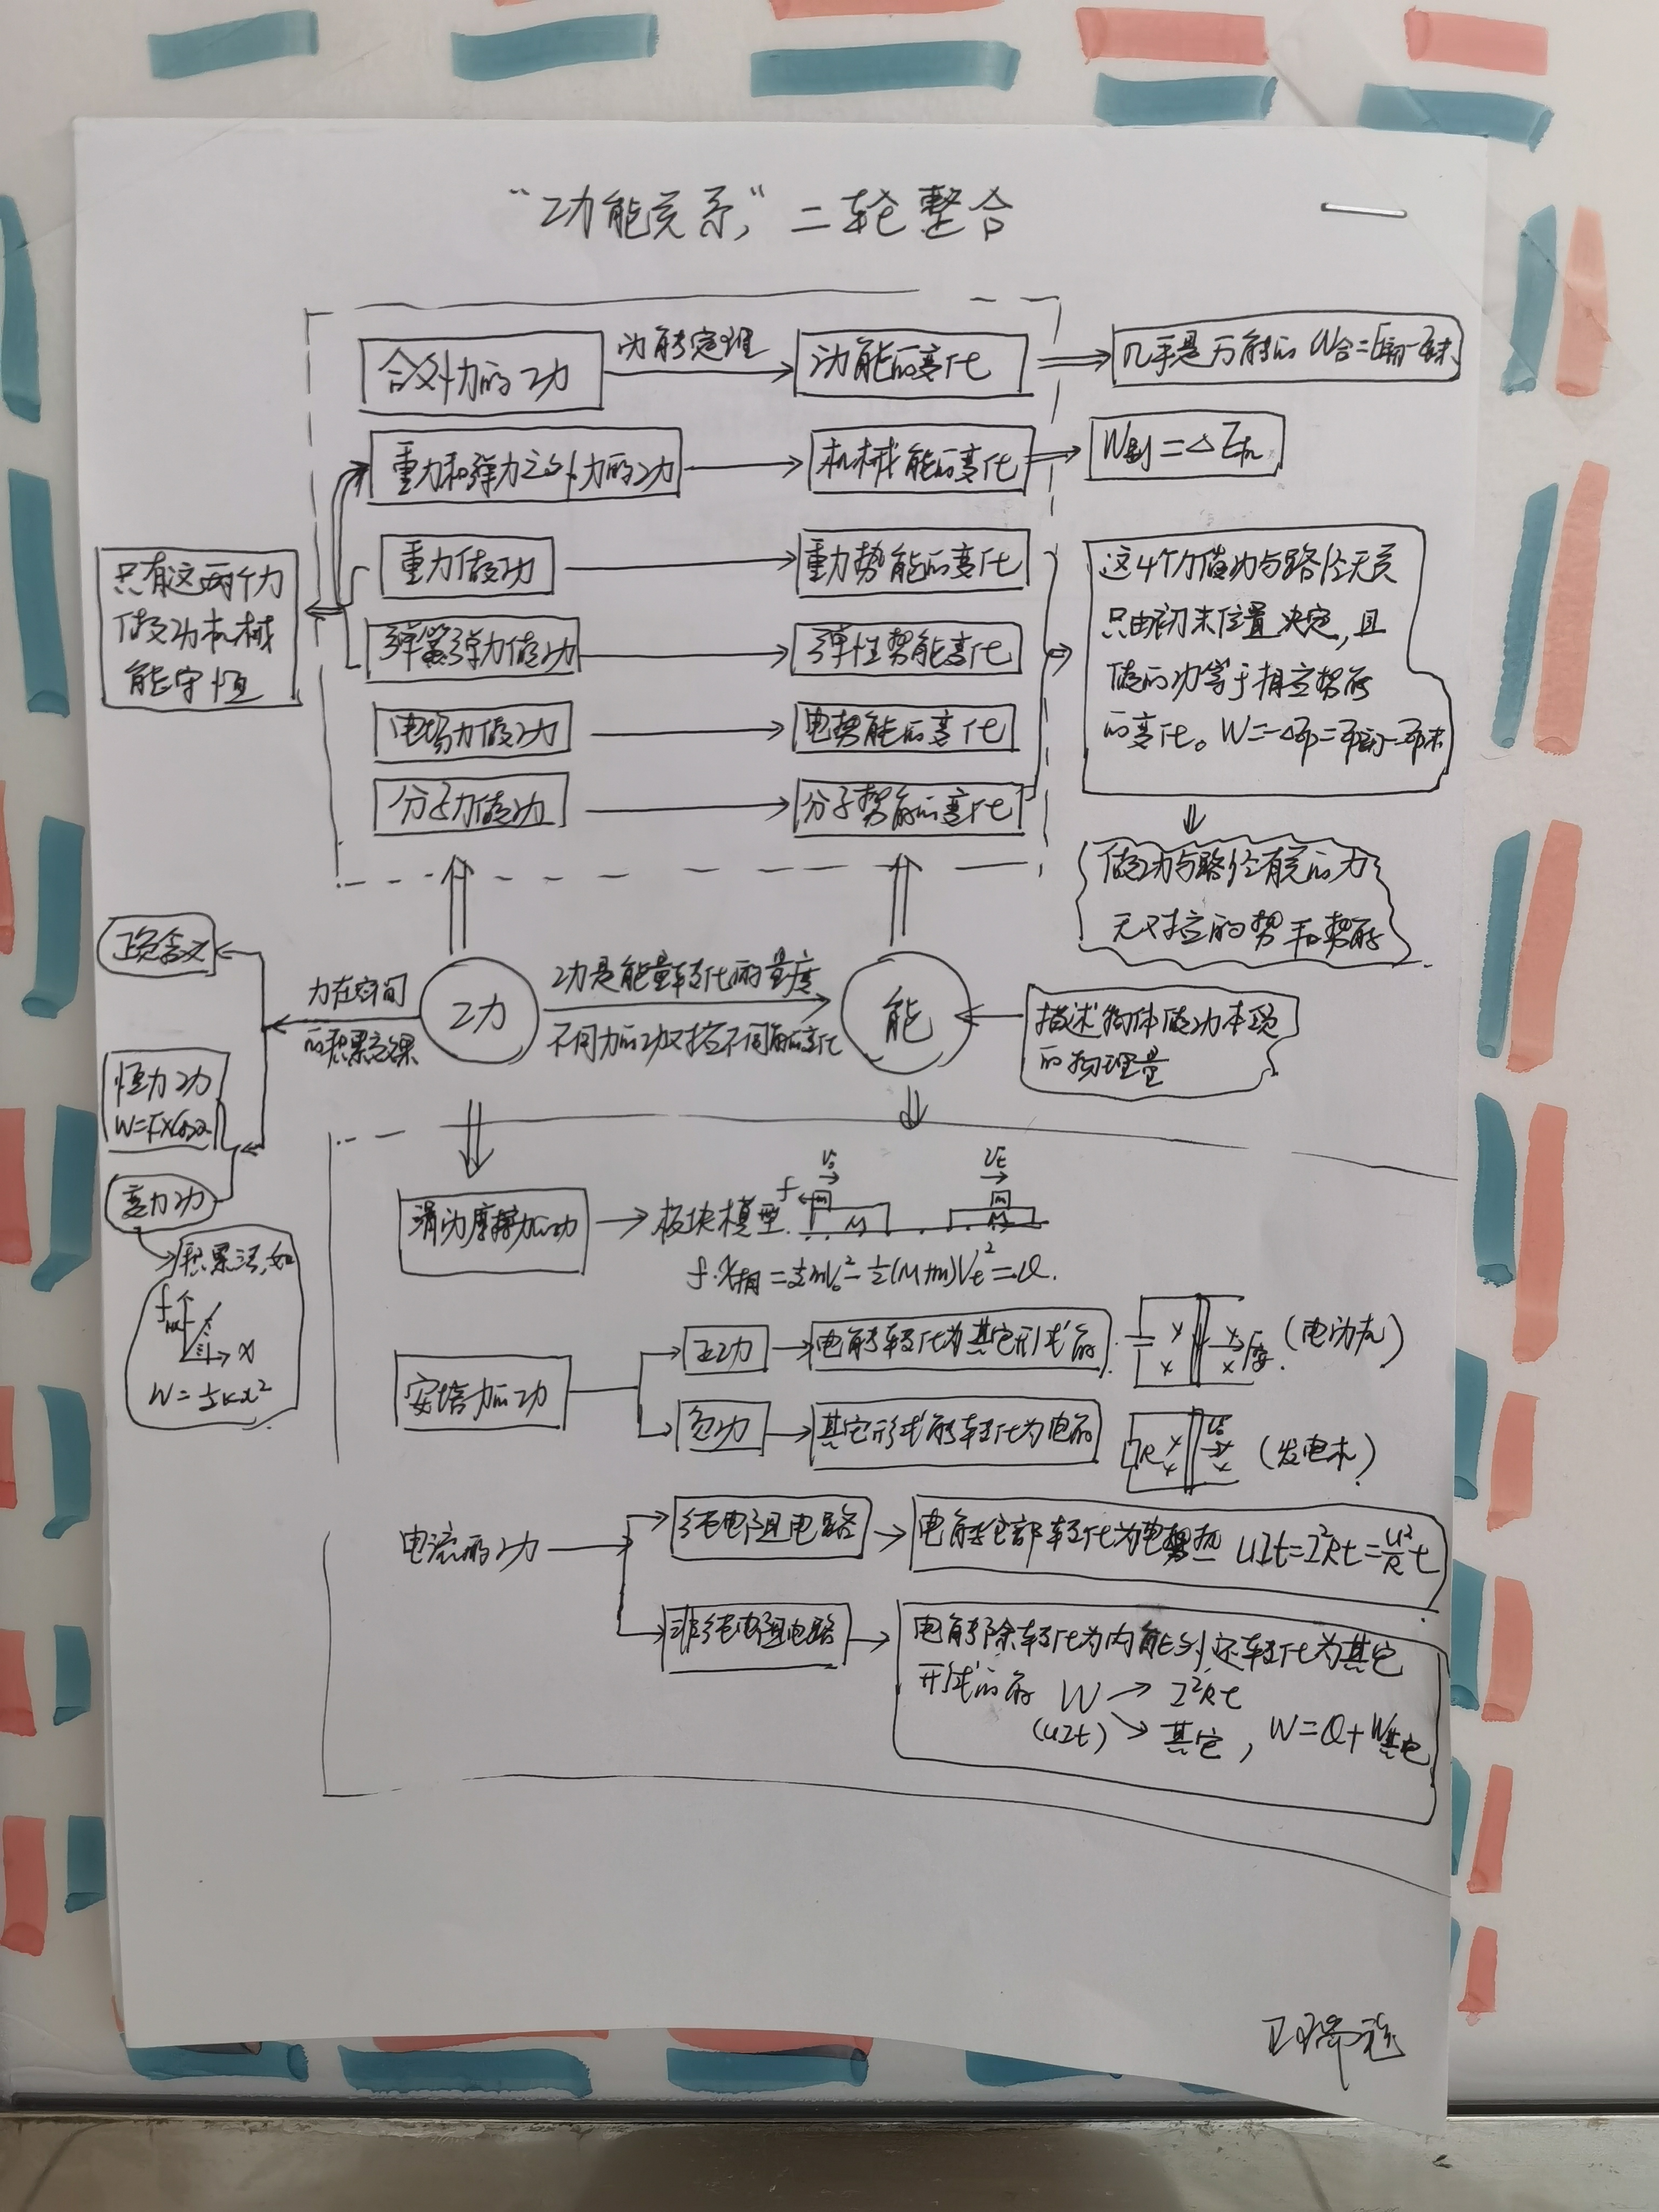 “功能关系”二轮整合
合外力的功
动能定理
动能的变化
几乎是万能的 W合=
重力和弹力之外力的功
机械能的变化
W别=△E机
重力做功
重力势能的变化
弹簧弹力做功
弹性势能变化
电场力做功
电势能的变化
分子力做功
分子势能的变化
只有这两个力
做功机械
能守恒
这4个力做功与路径无关
只由初末位置决定,且
做的功等于相应势能
的变化。W=-△Ep=Ep初-Ep末
做功与路径有关的力
无对应的势和势能
正负含义
力在空间
的积累效果
功
功是能量转化的量度
不同力的功对应不同能的变化
能
描述物体做功本领
的物理量
恒力功
W=FxCosα
变力功
积累法,如
x
W=½Kx²
滑动摩擦力的功
板块模型
f
V₀
m
M
Vt
m
M
f·x相=½mV₀²-½(M+m)Vt²=Q.
安培力的功
正功
电能转化为其它形式能
(电动机)
负功
其它形式能转化为电能
R
V₀
(发电机)
电流的功
纯电阻电路
电能全部转化为电热 UIt=I²Rt=U²/R t
非纯电阻电路
电能除转化为内能外还转化为其它
形式的能 W → I²Rt
(UIt) → 其它, W=Q+W其它